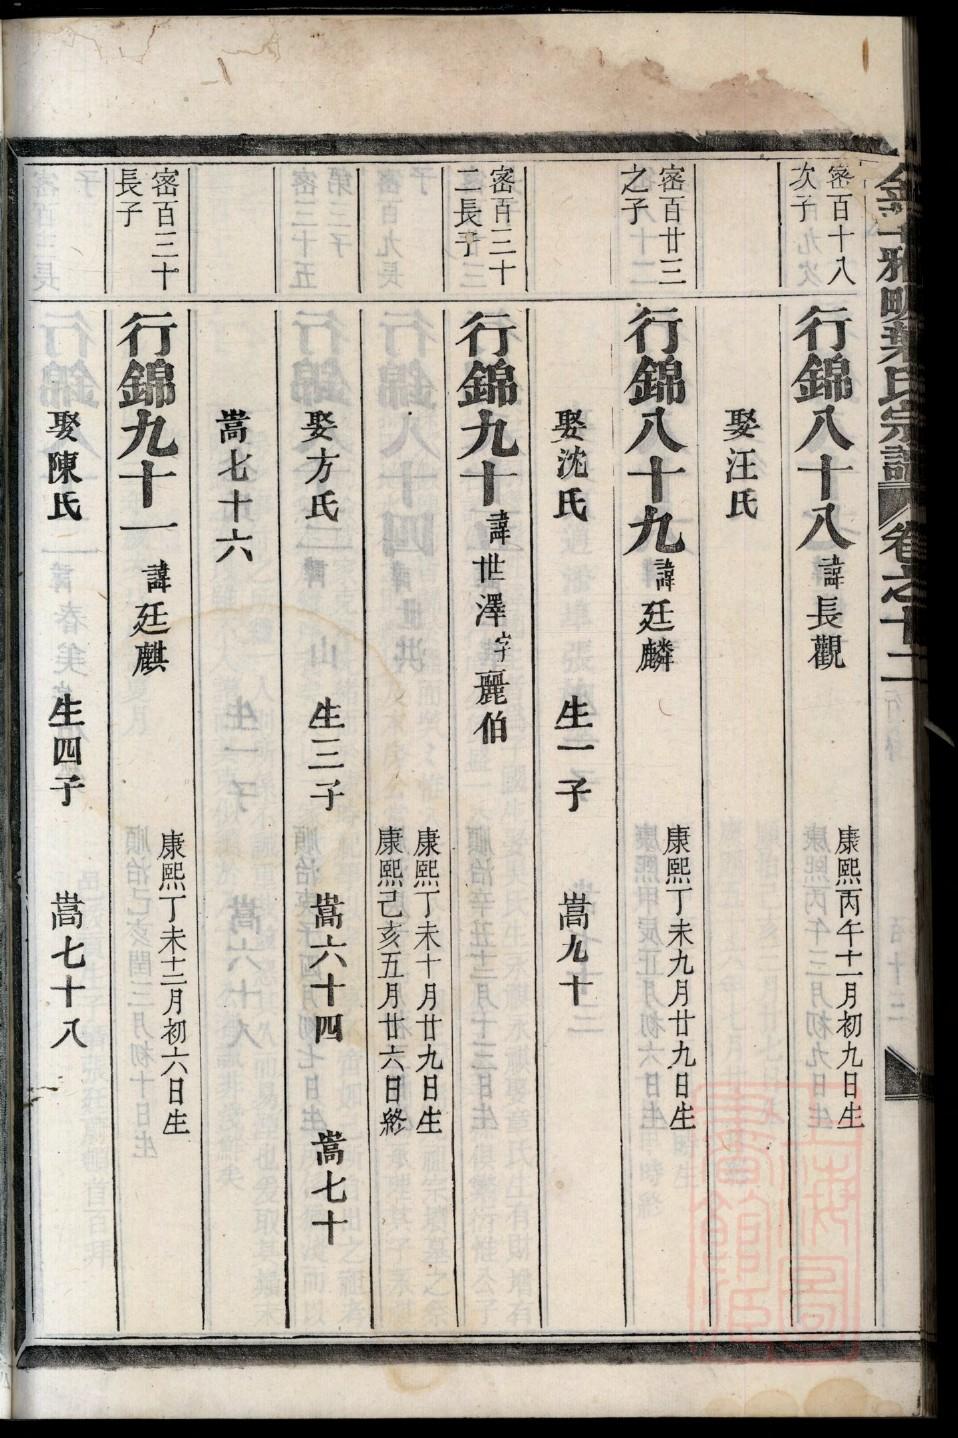 雅明葉氏宗譜 卷之十二
密百十八
次子
行錦八十八 諱長觀
康熙丙午十一月初九日生
娶汪氏
密百廿三
之子
行錦八十九 諱廷麟
康熙丁未九月廿九日生
娶沈氏 生一子 嵩九十
密百三十
二長子
行錦九十 諱世澤字麗伯
康熙丁未十月廿九日生
康熙己亥五月廿六日終
娶方氏 生三子 嵩六十四 嵩七十
嵩七十六
密百三十
長子
行錦九十一 諱廷麒
康熙丁未十二月初六日生
娶陳氏 生四子 嵩七十八